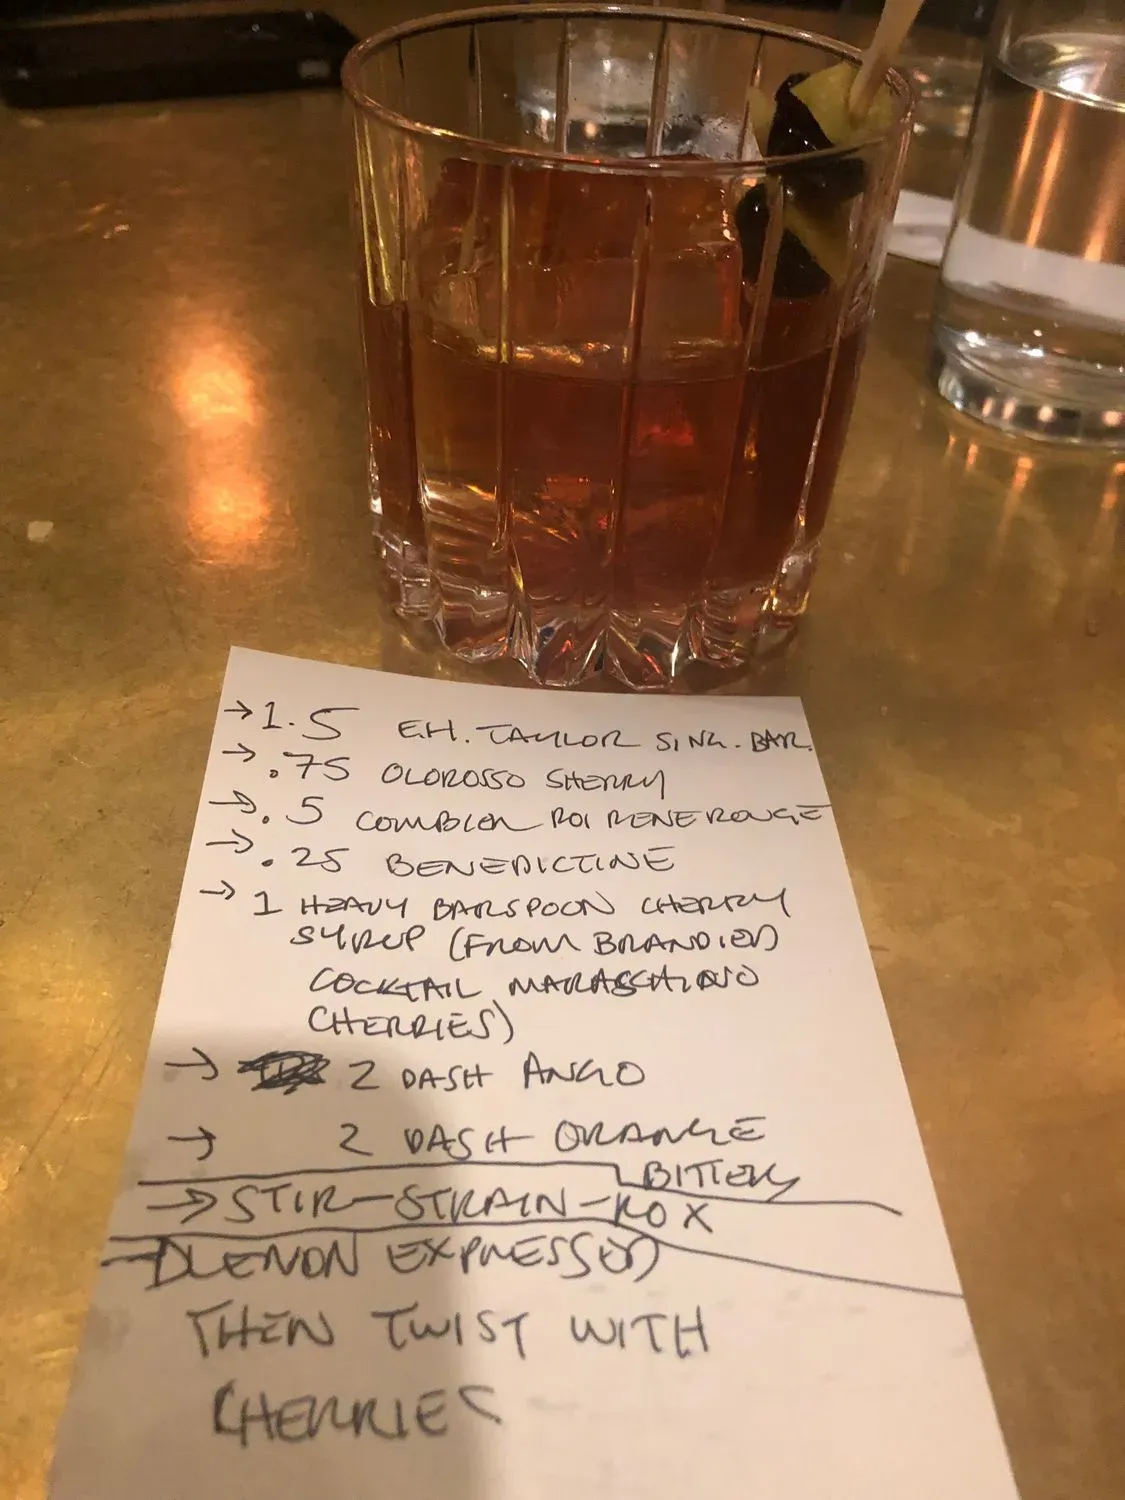 → 1.5 E.H. TAYLOR SING. BAR.
→ .75 OLOROSSO SHERRY
→ .5 COMBIER ROI RENE ROUGE
→ .25 BENEDICTINE
→ 1 HEAVY BARSPOON CHERRY
SYRUP (FROM BRANDIED
COCKTAIL MARASCHINO
CHERRIES)
→ 2 DASH ANGO
→ 2 DASH ORANGE
BITTERS
→ STIR-STRAIN-ROX
→ LEMON EXPRESSED
THEN TWIST WITH
CHERRIES